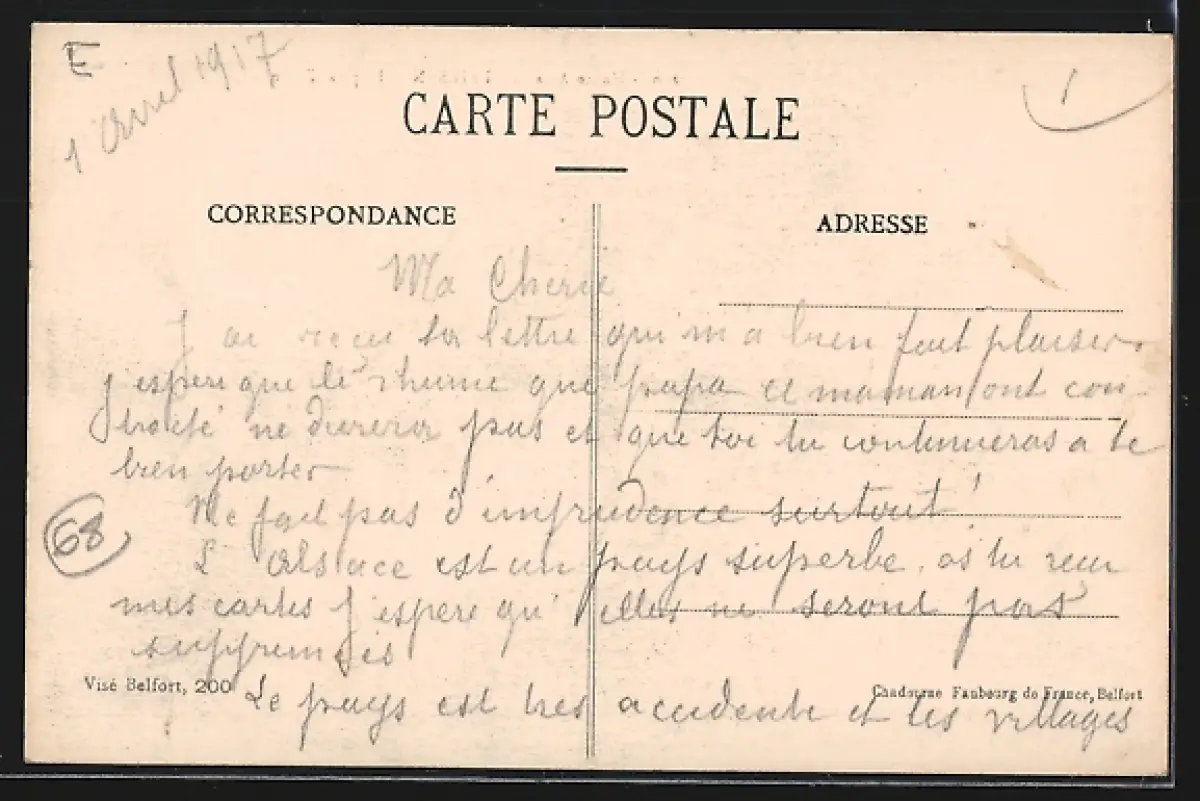 E
1 Avril 1917
1
CARTE POSTALE
CORRESPONDANCE
ADRESSE
Ma Cherie
J ai recu ta lettre qui m'a bien fait plaisir.
J espere que le rhume que papa et maman ont con-
tracté ne durera pas et que toi tu continueras a te
bien porter
Ne fait pas d'imprudence surtout!
68
L'Alsace est un pays superbe. as tu recu
mes cartes J'espere qu'elles ne seront pas
supprimées
Visé Belfort, 200
Chadourne Faubourg de France, Belfort
Le pays est tres accidente et les villages